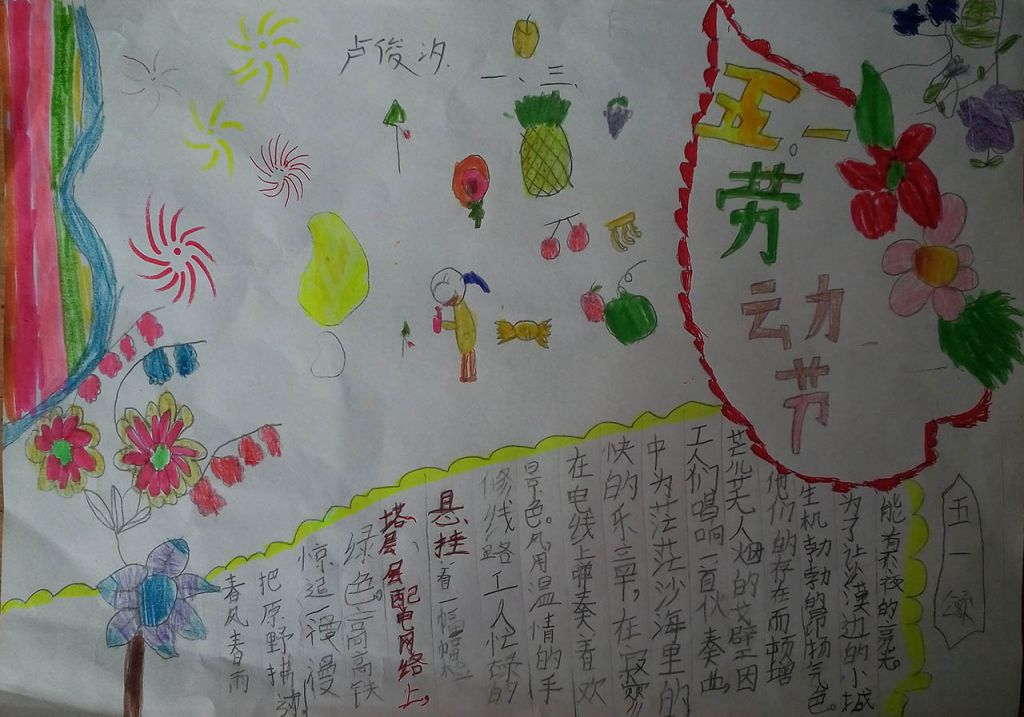 卢俊汐
一、三
五。一
劳
动
节
五一颂
春风春雨
把原野耕
惊起一幔幔
绿色。高高铁
塔层层配电网络上,
悬挂着一幅幅
修线路工人忙碌的
景色。风用温情的手
在电线上弹奏着欢
快的乐章,在寂寞
中为茫茫沙海里的
工人们唱响一首伙奏曲,
芒芒无人烟的戈壁因
他们的存在而顿增
生机勃勃的昂扬气色。
为了让漠边的小城
能有夜的亮光。